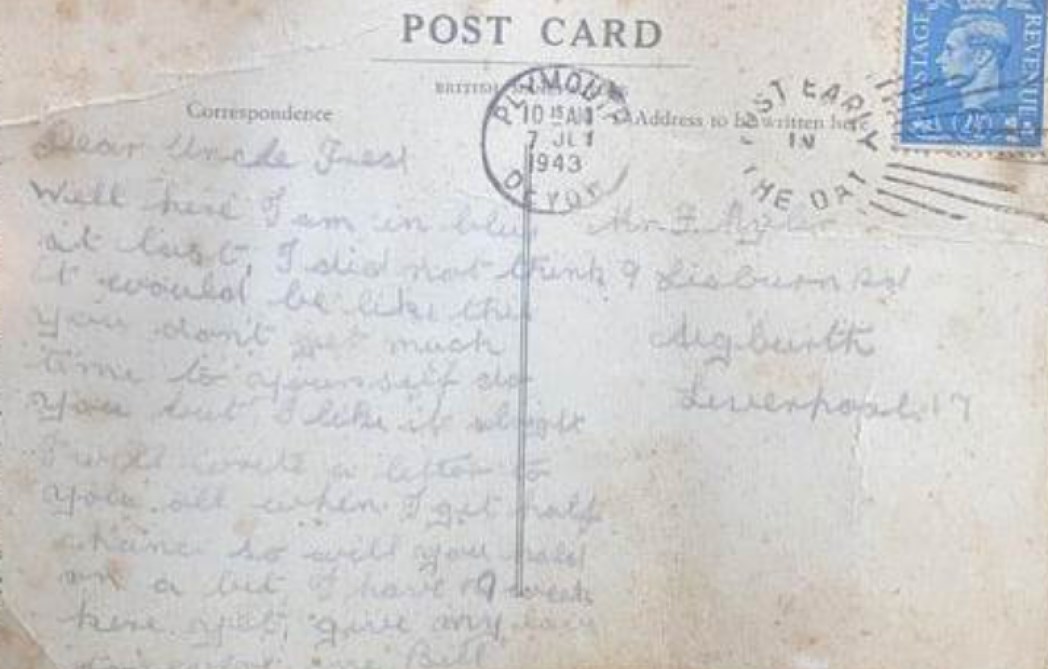 POST CARD
BRITISH
Correspondence
Address to be written here
POSTAGE
REVENUE
2½
PLYMOUTH
10 15 AM
7 JL
1943
DEVON
POST EARLY
IN
THE DAY
Dear Uncle Fred
Well here I am in blue
at last, I did not think
it would be like this
you don't get much
time to yourself do
you but I like it alright
I will write a letter to
you all when I get half
a chance so will you hold
on a bit I have 9 weeks
here yet, give my love
Bill
Mr. F.
9 Lisburn Rd
Aigburth
Liverpool.17